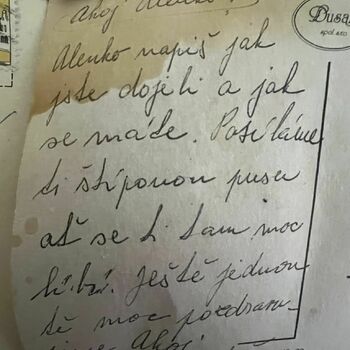 Ahoj Alenko!
Alenko napiš jak
jste dojeli a jak
se máte. Posíláme
ti štípanou pusu
ať se ti tam moc
líbí. Ještě jednou
tě moc pozdravu-
jeme Ahoj
Dusa
spol. s r.o.